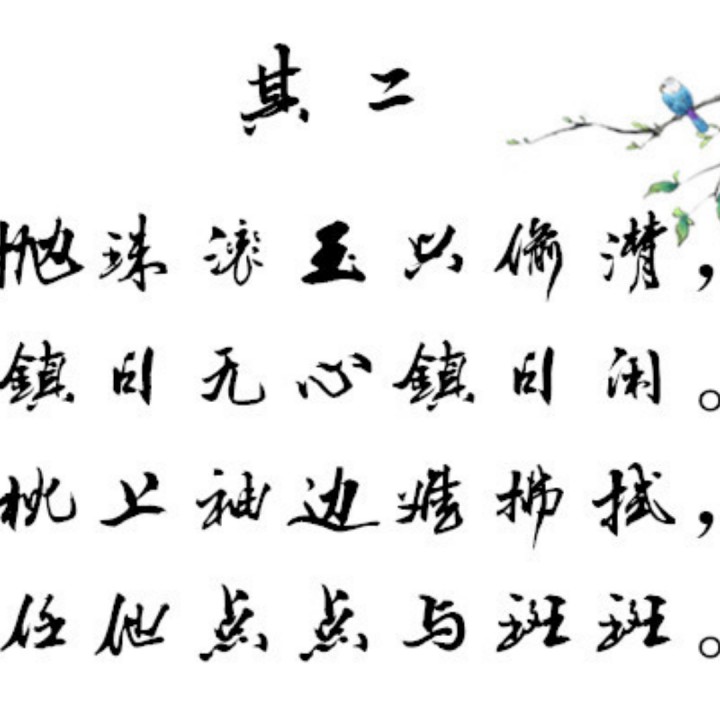 其二
抛珠滚玉只偷潸，
鎮日无心鎮日闲。
枕上袖边难拂拭，
任他点点与斑斑。